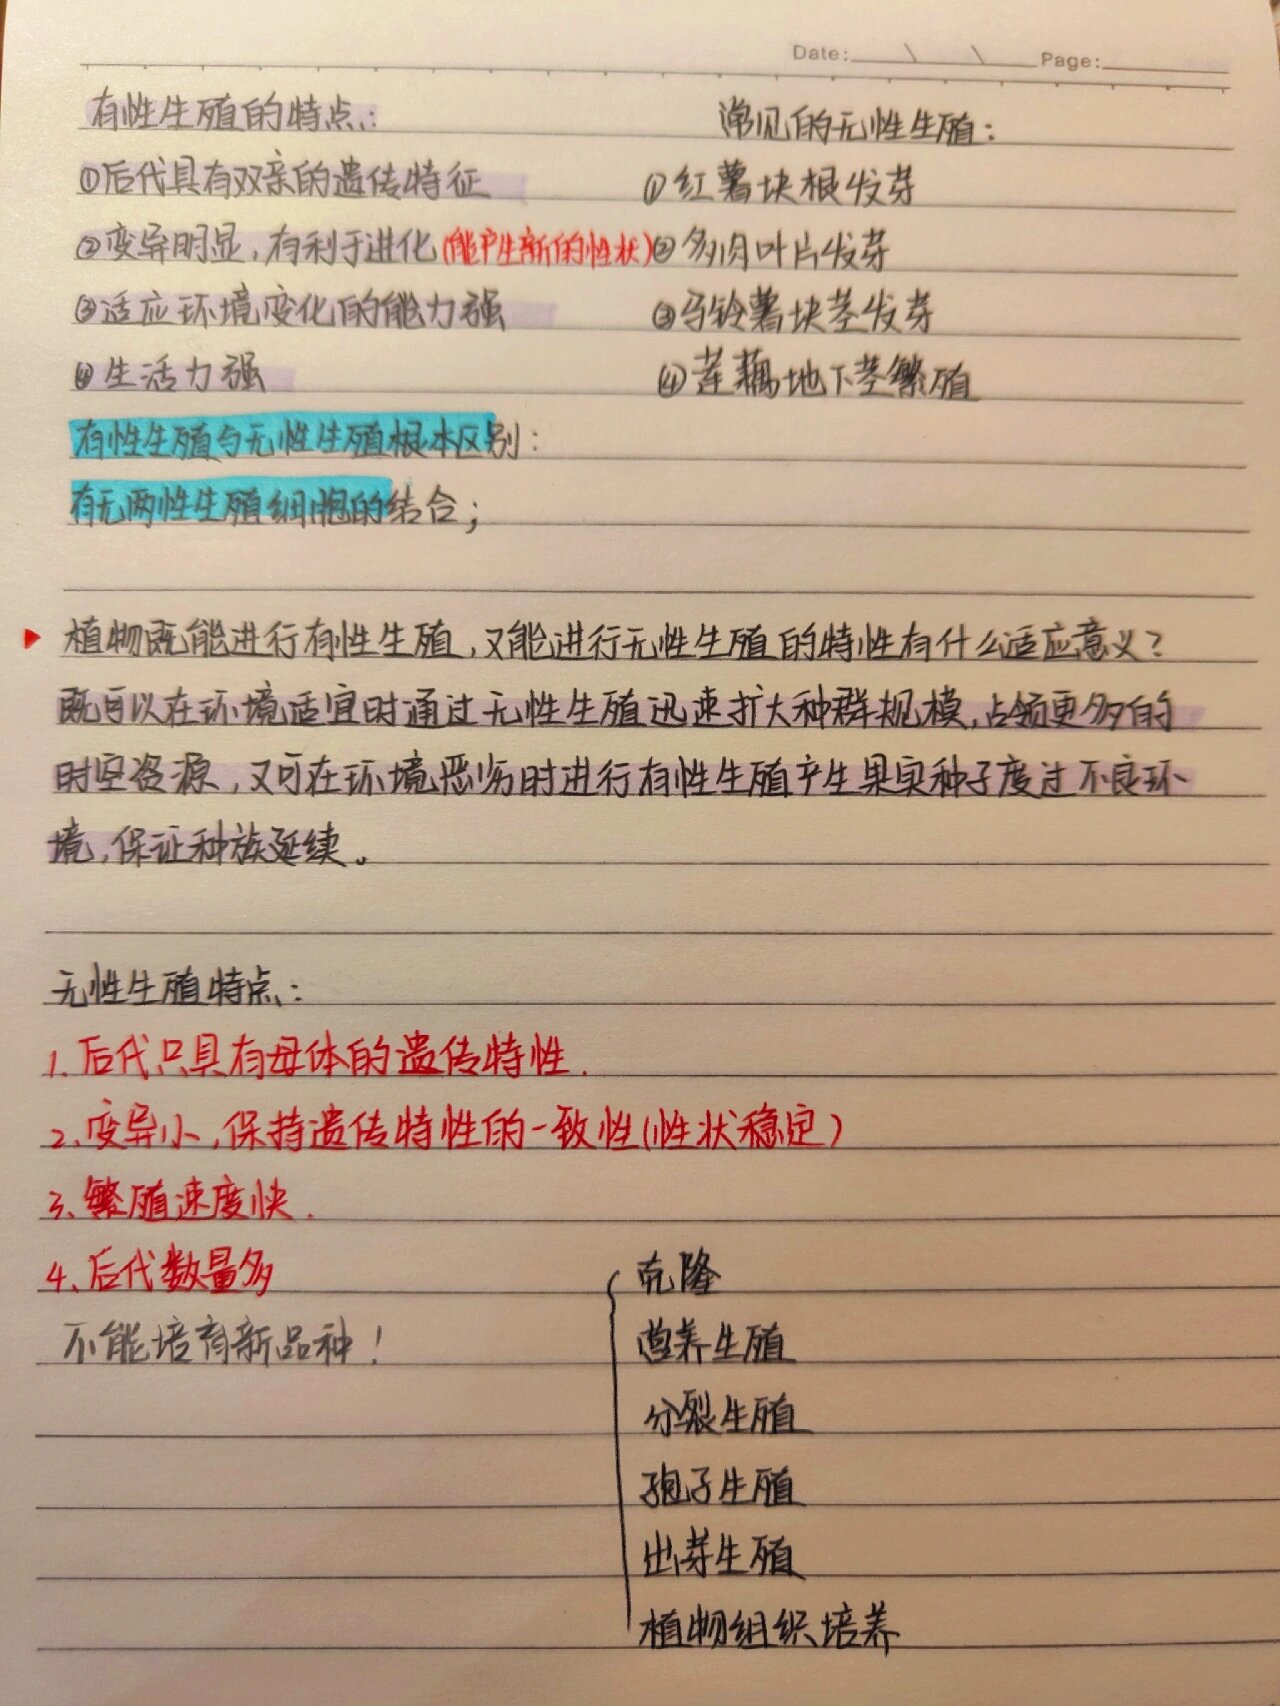 Date: \ \ Page:
有性生殖的特点:
①后代具有双亲的遗传特征
②变异明显,有利于进化(能产生新的性状)
③适应环境变化的能力强
④生活力强
常见的无性生殖:
①红薯块根发芽
②多肉叶片发芽
③马铃薯块茎发芽
④莲藕地下茎繁殖
有性生殖与无性生殖根本区别:
有无两性生殖细胞的结合;
植物既能进行有性生殖,又能进行无性生殖的特性有什么适应意义?
既可以在环境适宜时通过无性生殖迅速扩大种群规模,占领更多的
时空资源,又可在环境恶劣时进行有性生殖产生果实种子度过不良环
境,保证种族延续。
无性生殖特点:
1.后代只具有母体的遗传特性.
2.变异小,保持遗传特性的一致性(性状稳定)
3、繁殖速度快.
4、后代数量多
不能培育新品种!
克隆
营养生殖
分裂生殖
孢子生殖
出芽生殖
植物组织培养